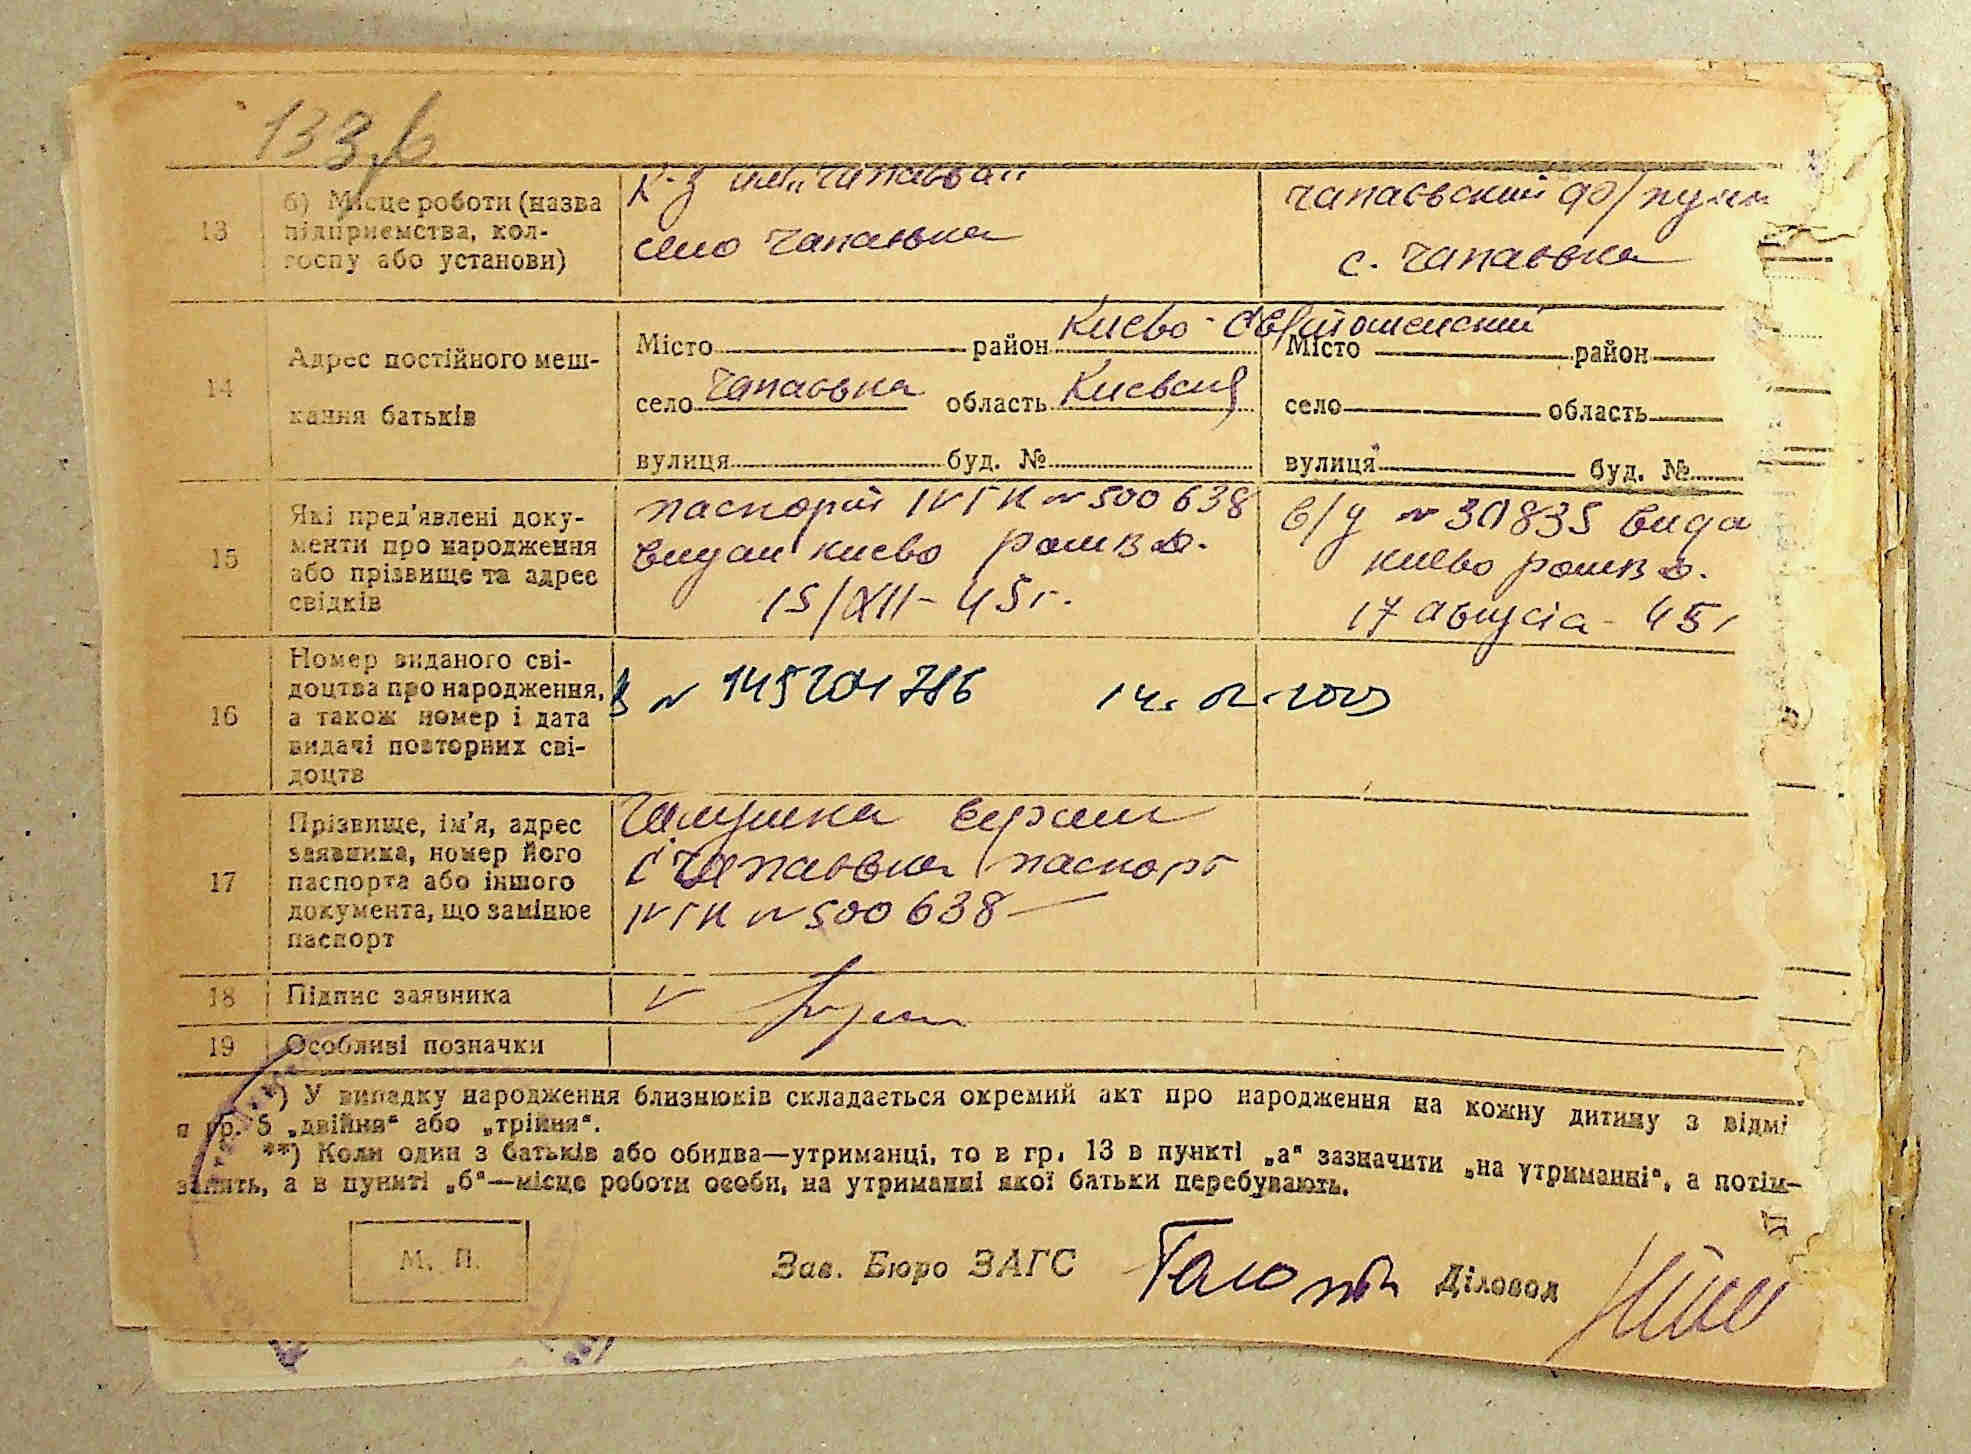 133
13
б) Місце роботи (назва
підприємства, кол-
госпу або установи)
к-з им. "Чапаева"
село Чапаевка
Чапаевский
с. Чапаевка
14
Адрес постійного меш-
кання батьків
Місто район Киево-Святошенский
село Чапаевка область Киевская
вулиця буд. №
Місто район
село область
вулиця буд. №
15
Які пред'явлені доку-
менти про народження
або прізвище та адрес
свідків
паспорт IV ГК № 500638
выдан Киево
15/XII-45г.
в/у № 30835 выда
Киево
17 августа - 45г
16
Номер виданого сві-
доцтва про народження,
а також номер і дата
видачі повторних сві-
доцтв
№ 14.02.
17
Прізвище, ім'я, адрес
заявника, номер його
паспорта або іншого
документа, що замінює
паспорт
с Чапаевка паспорт
IV ГК № 500638
18
Підпис заявника
19
Особливі позначки
*) У випадку народження близнюків складається окремий акт про народження на кожну дитину з відмі
в гр. 5 „двійня“ або „трійня“.
**) Коли один з батьків або обидва—утриманці, то в гр. 13 в пункті „а“ зазначити „на утриманні“, а потім—
занять, а в пункті „б“—місце роботи особи, на утриманні якої батьки перебувають.
М. П.
Зав. Бюро ЗАГС
Діловод